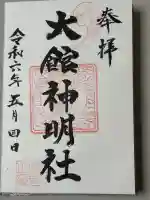 奉拝
大館神明社
令和六年五月四日